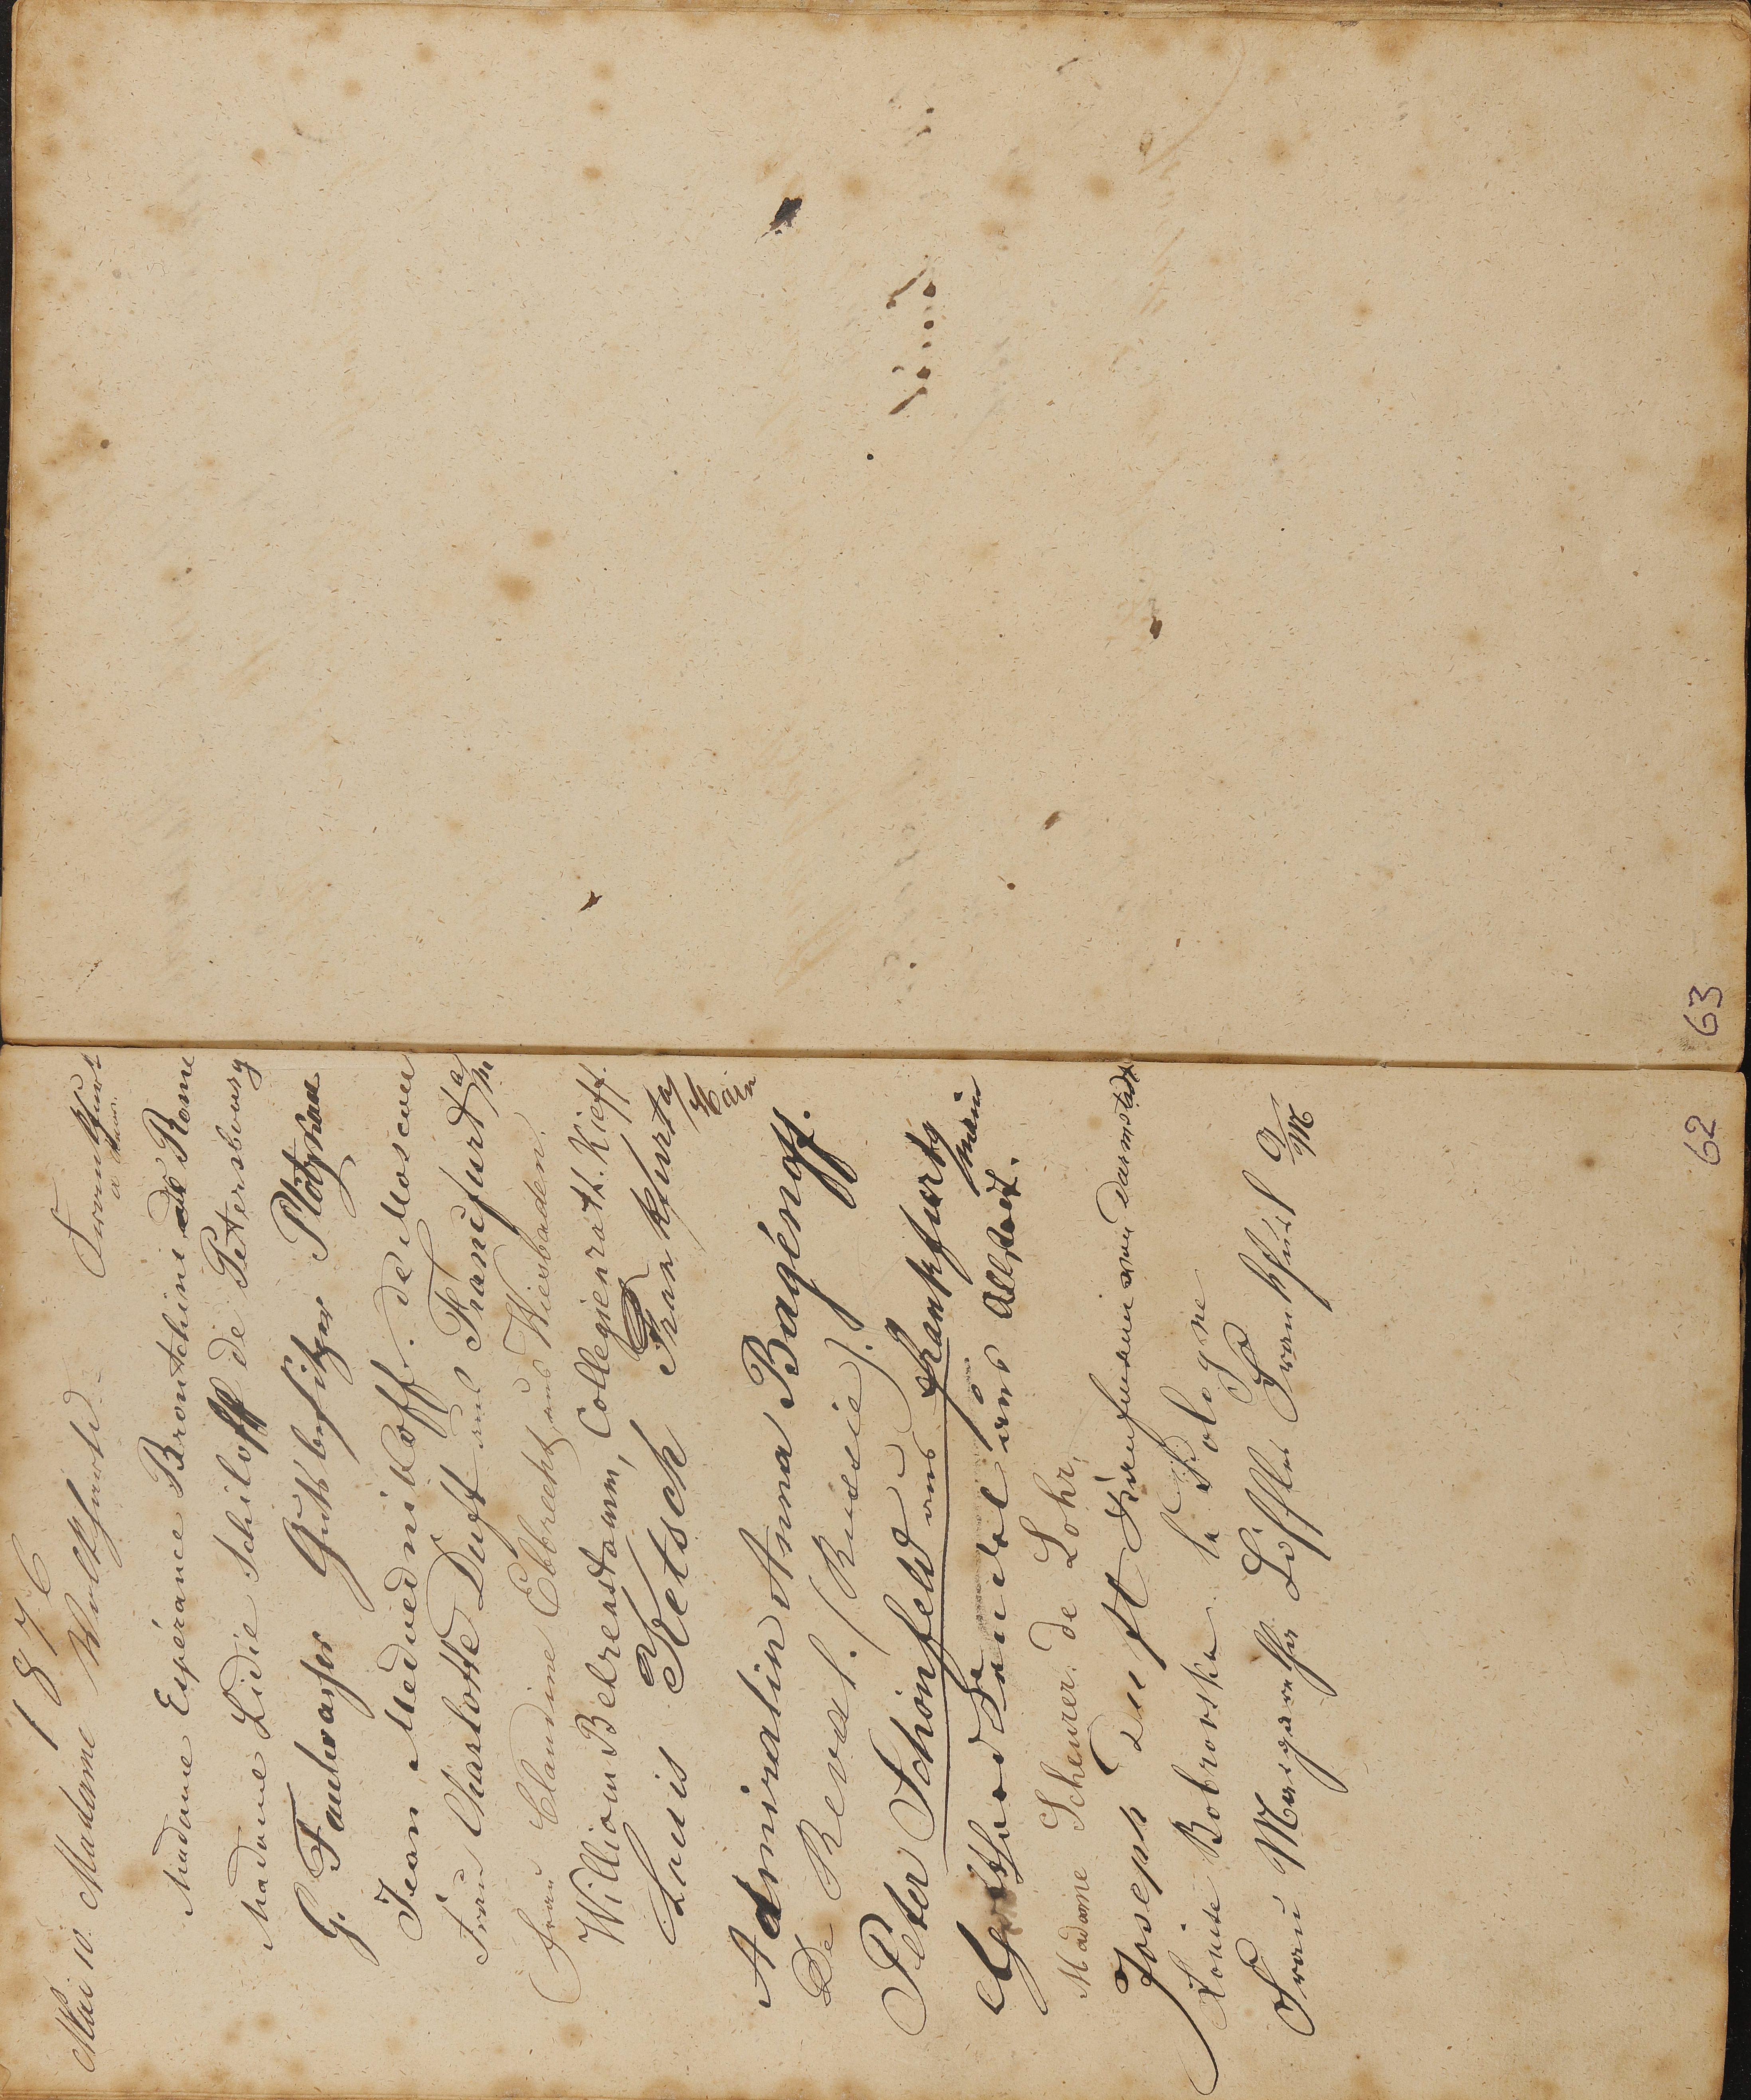 1876
Mai 10. Madame Wolkhardt Frankfurt a Main.
Madame Espérance Brontchini de Rome
Madame Lidie Schiloff de Petersbourg
G. Fauhwasser Gutsbesitzer Plötzkau
Jean Medwednikoff. de Moscou
Frau Charlotte Duft aus Francfurt a/M
Frau Claudine Ebbrecht aus Wiesbaden.
William Belrendamm, Collegienrath. Kieff.
Louis Retsch Frankfurt a/Main
Admiralin Anna Bagénoff.
De Reval. (Russie).
Peter Schönfeld aus Frankfurt a/main
Gotthard aus Allstedt.
Madame Scheurer. de Lohr,
Joseph Duft von Darmstadt
Louise Bobrovska la Pologne
Frau Margarethe Löffler Frankfurt a/M
62
63